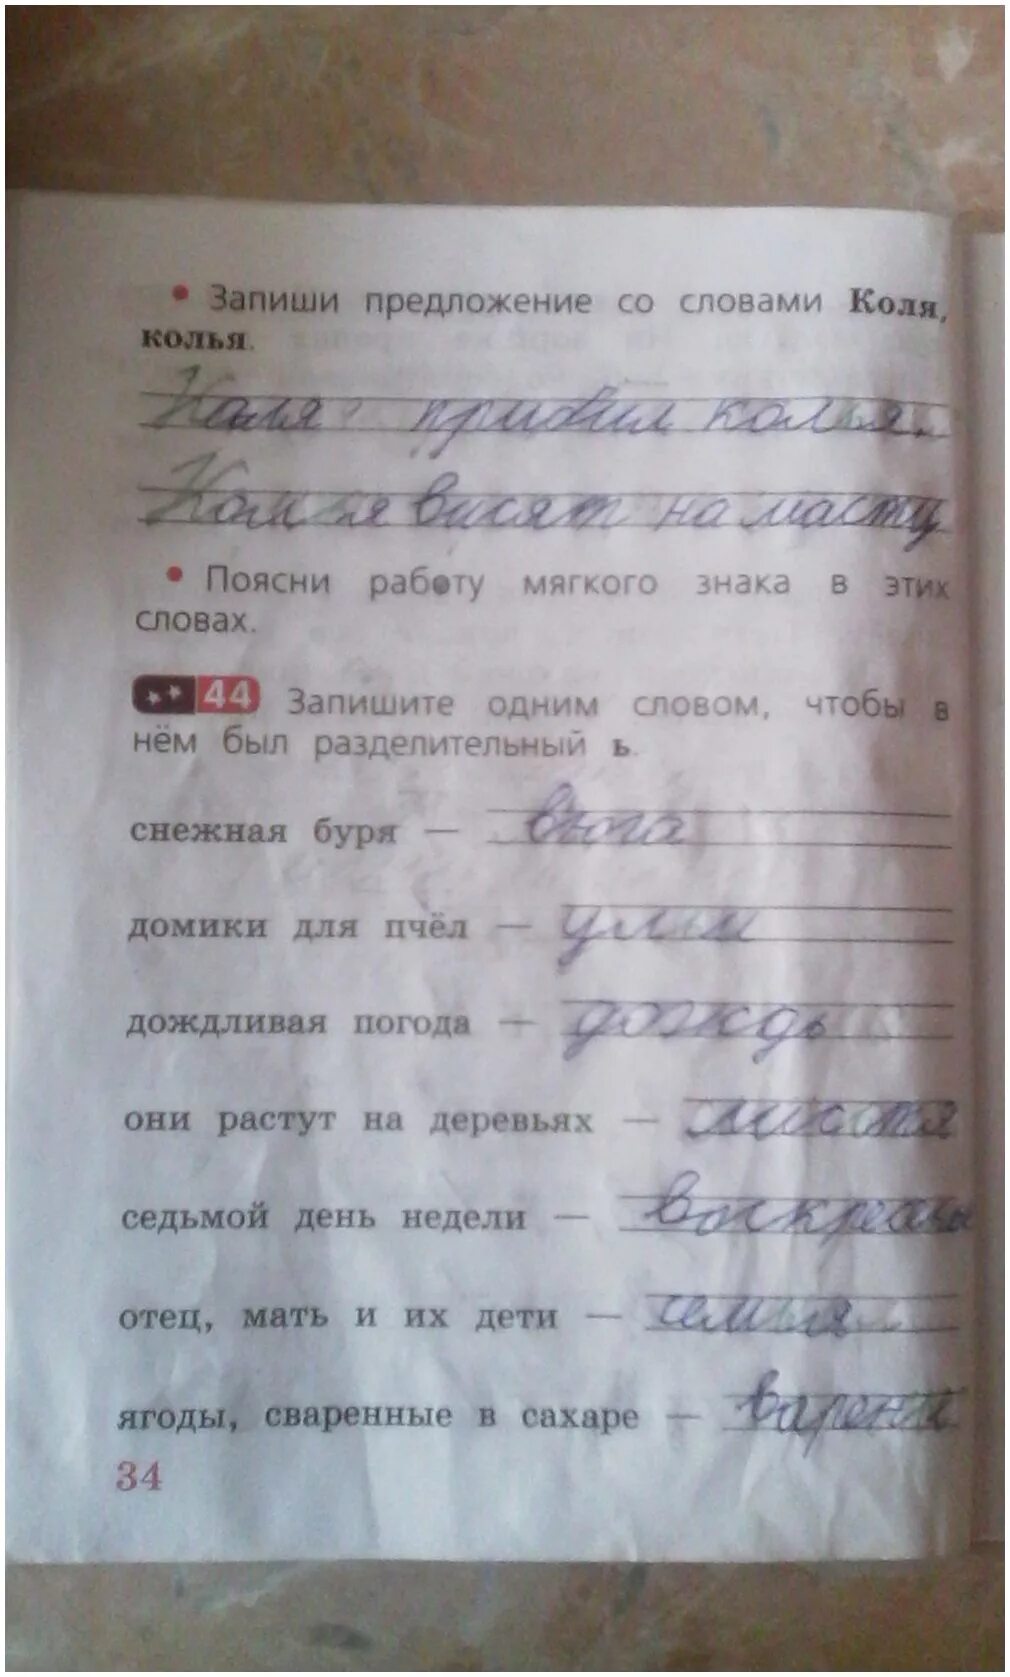 • Запиши предложение со словами Коля,
колья.
Коля прибил колья.
Колья висят на масту
• Поясни работу мягкого знака в этих
словах.
44 Запишите одним словом, чтобы в
нём был разделительный ь.
снежная буря — вьюга
домики для пчёл — ульи
дождливая погода — дождь
они растут на деревьях — листья
седьмой день недели —
отец, мать и их дети — семья
ягоды, сваренные в сахаре —
34